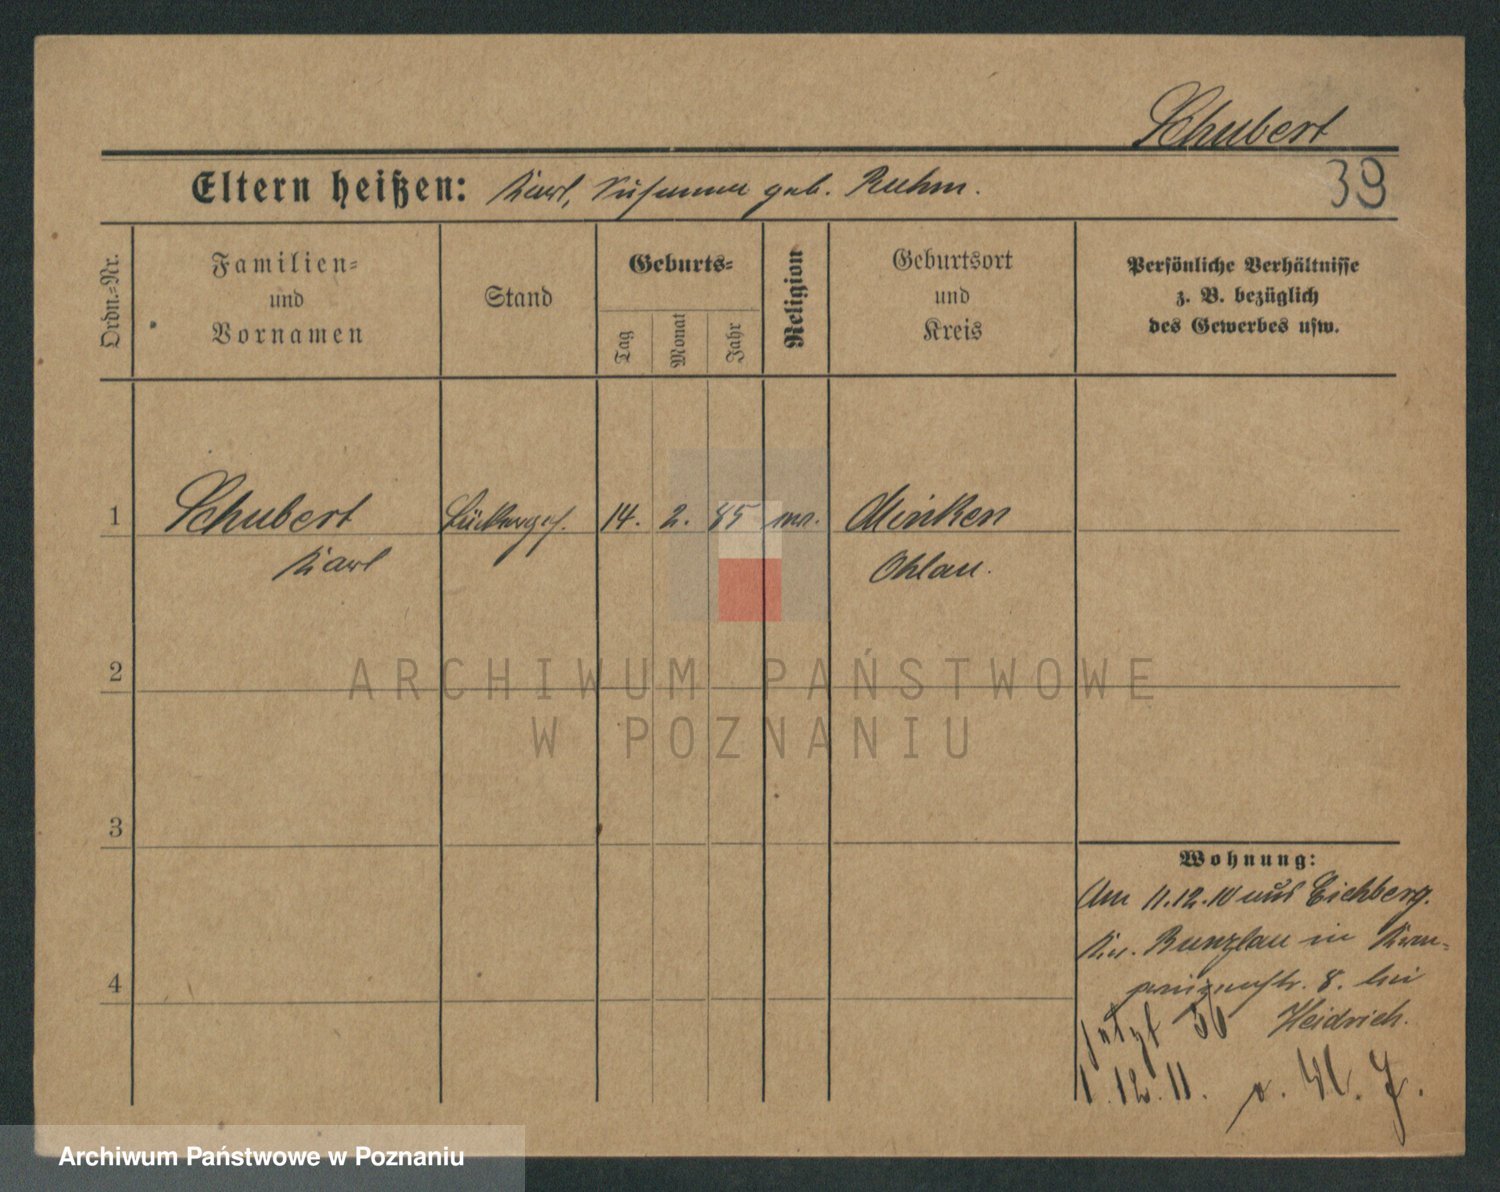 Schubert
39
Eltern heißen: Karl, Susanna geb. Ruhm.
Ordn.-Nr.
Familien-
und
Vornamen
Stand
Geburts-
Tag
Monat
Jahr
Religion
Geburtsort
und
Kreis
Persönliche Verhältnisse
z. B. bezüglich
des Gewerbes usw.
1 Schubert 14. 2. 85 Minken
Karl Ohlau.
2
3
4
Wohnung:
Am 11.12.10 aus Eichberg.
Kr. Bunzlau in
8. bei
Heidrich.
jetzt 36
1.12.11. v. W. J.
ARCHIWUM PAŃSTWOWE
W POZNANIU
Archiwum Państwowe w Poznaniu